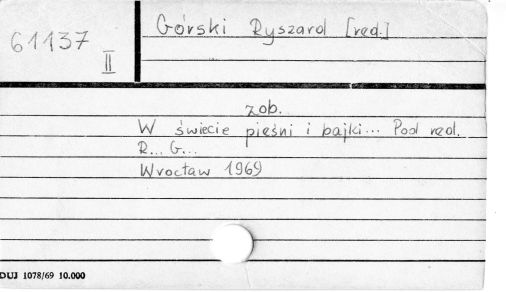 61137
II
Górski Ryszard [red.]
zob.
W świecie pieśni i bajki... Pod red.
R... G...
Wrocław 1969
DUJ 1078/69 10.000